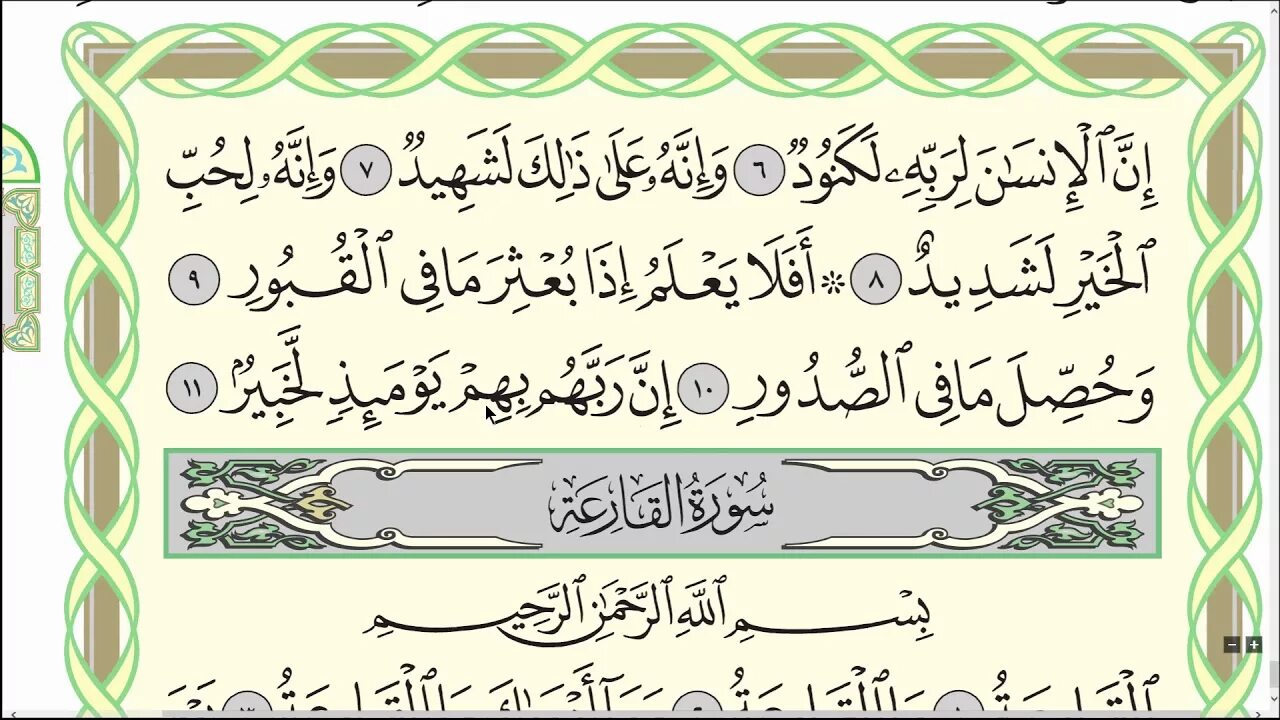 إِنَّ ٱلْإِنسَٰنَ لِرَبِّهِۦ لَكَنُودٌ ٦ وَإِنَّهُۥ عَلَىٰ ذَٰلِكَ لَشَهِيدٌ ٧ وَإِنَّهُۥ لِحُبِّ
ٱلْخَيْرِ لَشَدِيدٌ ٨ ۞ أَفَلَا يَعْلَمُ إِذَا بُعْثِرَ مَا فِى ٱلْقُبُورِ ٩
وَحُصِّلَ مَا فِى ٱلصُّدُورِ ١٠ إِنَّ رَبَّهُم بِهِمْ يَوْمَئِذٍ لَّخَبِيرٌۢ ١١
سُورَةُ القَارِعَةِ
بِسْمِ ٱللَّهِ ٱلرَّحْمَٰنِ ٱلرَّحِيمِ